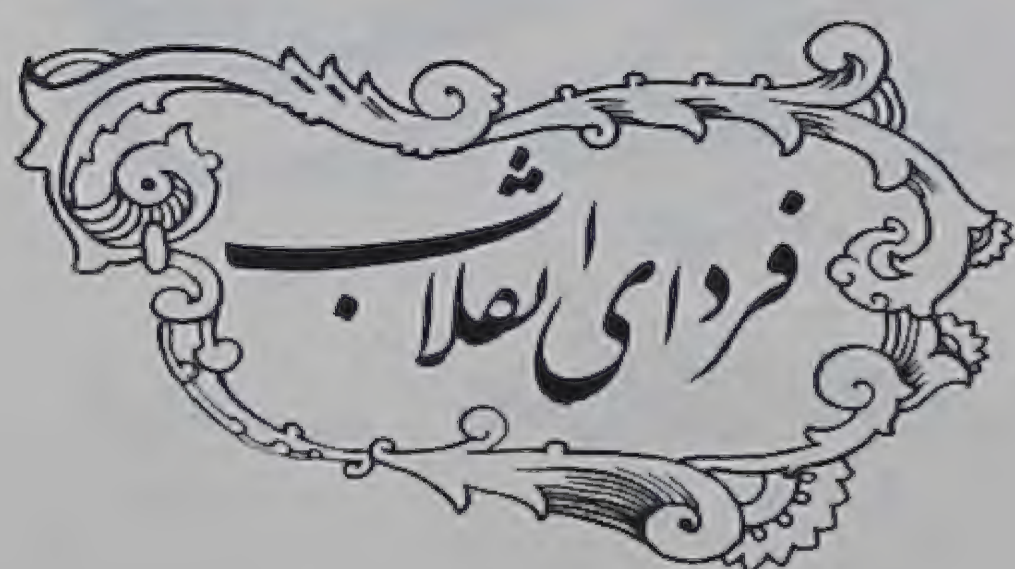 فردای انقلاب